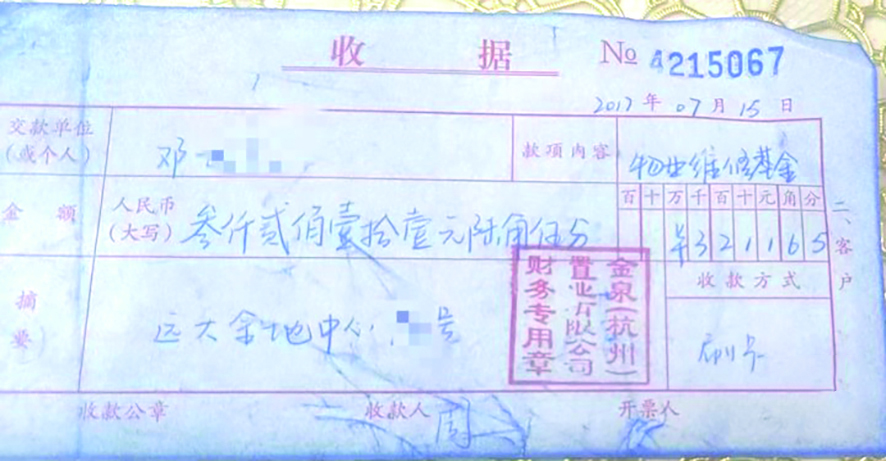 收据 № 4215067
2017年07月15日
交款单位
(或个人)
邓
款项内容
物业维修基金
金额
人民币
(大写)
叁仟贰佰壹拾壹元陆角伍分
百十万千百十元角分
¥321165
二、客户
摘要
远大金地中心 号
收款方式
刷卡
金泉(杭州)
置业有限公司
财务专用章
收款公章
收款人
周
开票人